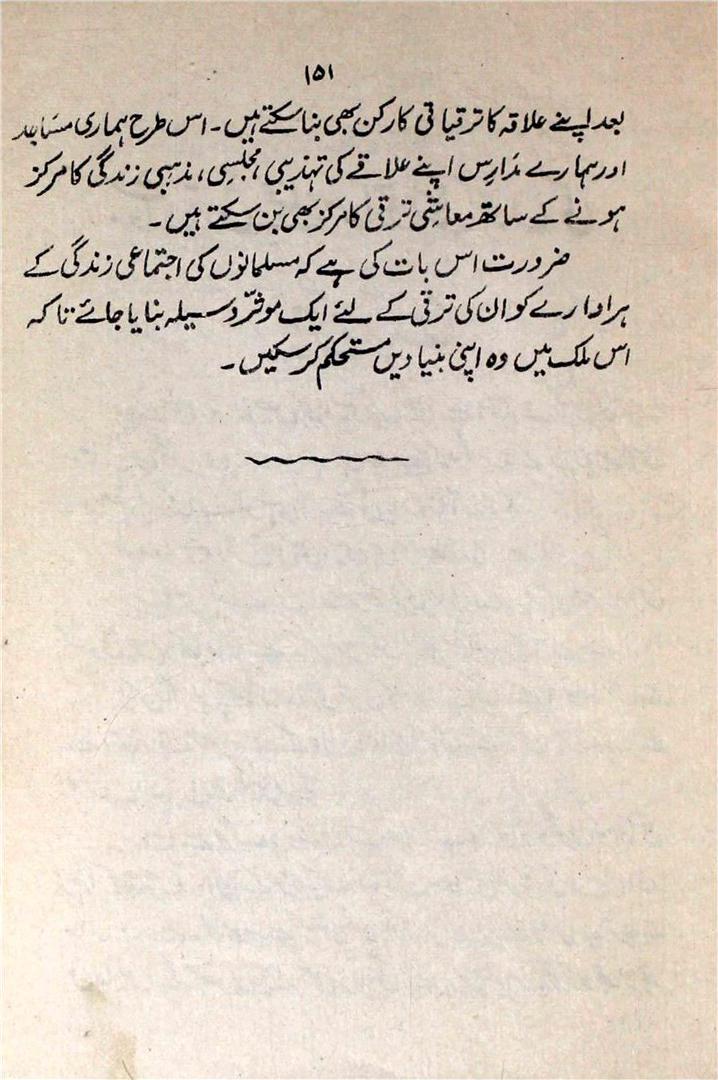 ۱۵۱
بعد اپنے علاقہ کا ترقیاتی کارکن بھی بنا سکتے ہیں۔ اس طرح ہماری مساجد
اور ہمارے مَدارِس اپنے علاقے کی تہذیبی، مجلسی، مذہبی زندگی کا مرکز
ہونے کے ساتھ معاشی ترقی کا مرکز بھی بن سکتے ہیں۔
ضرورت اس بات کی ہے کہ مسلمانوں کی اجتماعی زندگی کے
ہر ادارے کو ان کی ترقی کے لئے ایک موثّر وسیلہ بنایا جائے تاکہ
اس ملک میں وہ اپنی بنیادیں مستحکم کرسکیں۔